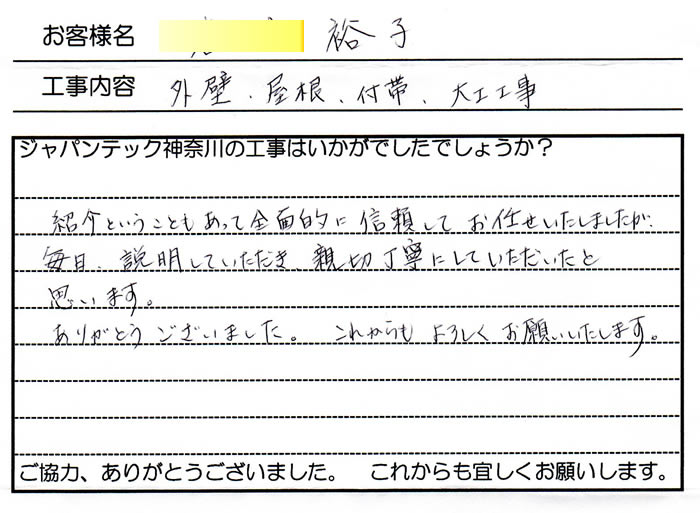 お客様名 裕子
工事内容 外壁、屋根、付帯、大工工事
ジャパンテック神奈川の工事はいかがでしたでしょうか？
紹介ということもあって全面的に信頼してお任せいたしましたが、
毎日、説明していただき、親切丁寧にしていただいたと
思います。
ありがとうございました。 これからもよろしくお願いいたします。
ご協力、ありがとうございました。 これからも宜しくお願いします。